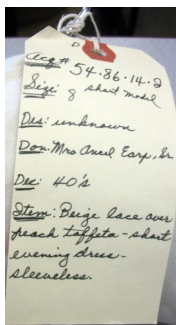 D
Acq# 54.86.14.2
Size: 9 short model
Des: unknown
Don: Mrs Ancil Earp, Sr
Dec: 40's
Item: Beige lace over
peach taffeta - short
evening dress -
sleeveless.